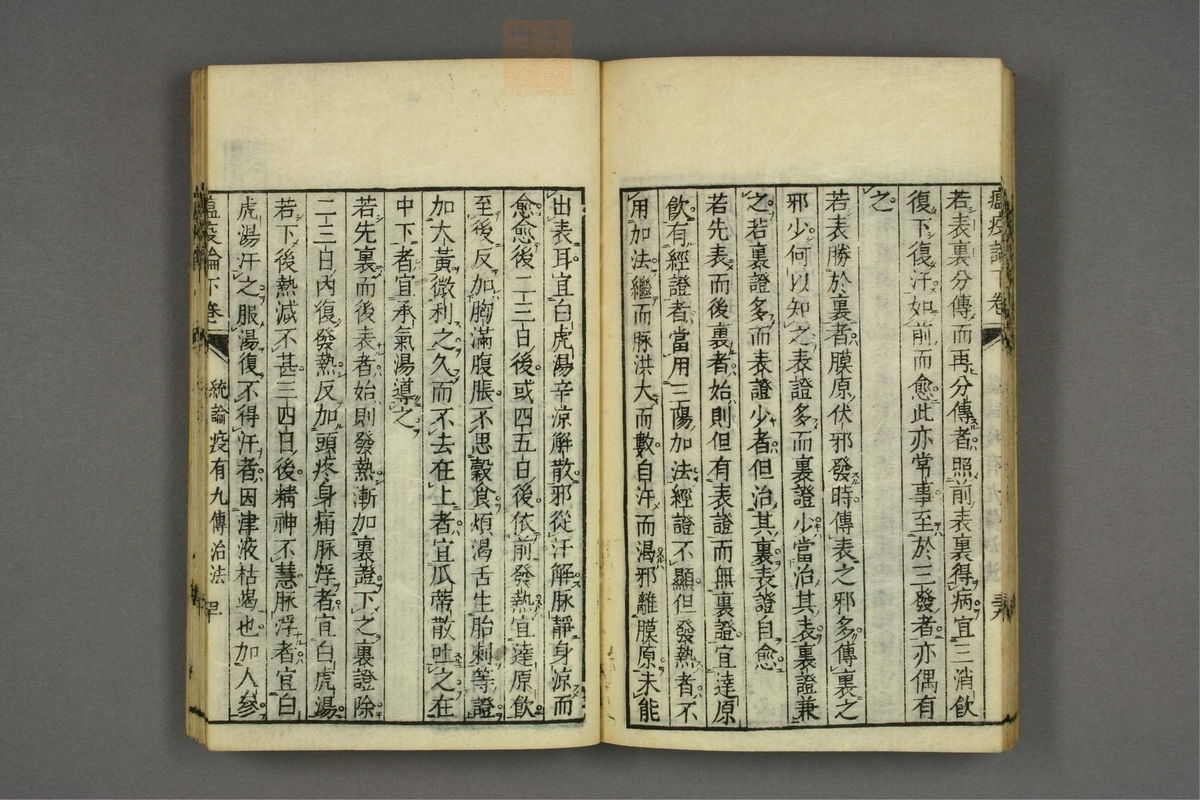 瘟疫論下卷
若表裏分傳而再分傳者照前表裏得病宜三消飲
復下復汗如前而愈此亦常事至於三發者亦偶有
之
若表勝於裏者膜原伏邪發時傳表之邪多傳裏之
邪少何以知之表證多而裏證少當治其表裏證兼
之若裏證多而表證少者但治其裏表證自愈
若先表而後裏者始則但有表證而無裏證宜達原
飲有經證者當用三陽加法經證不顯但發熱者不
用加法繼而脉洪大而數自汗而渴邪離膜原未能
出表耳宜白虎湯辛涼解散邪從汗解脉靜身涼而
愈愈後二三日後或四五日後依前發熱宜達原飲
至後反加胸滿腹脹不思穀食煩渴舌生胎刺等證
加大黃微利之久而不去在上者宜瓜蒂散吐之在
中下者宜承氣湯導之
若先裏而後表者始則發熱漸加裏證下之裏證除
二三日內復發熱反加頭疼身痛脉浮者宜白虎湯
若下後熱減不甚三四日後精神不慧脉浮者宜白
虎湯汗之服湯復不得汗者因津液枯竭也加人參
瘟疫論下卷 統論疫有九傳治法